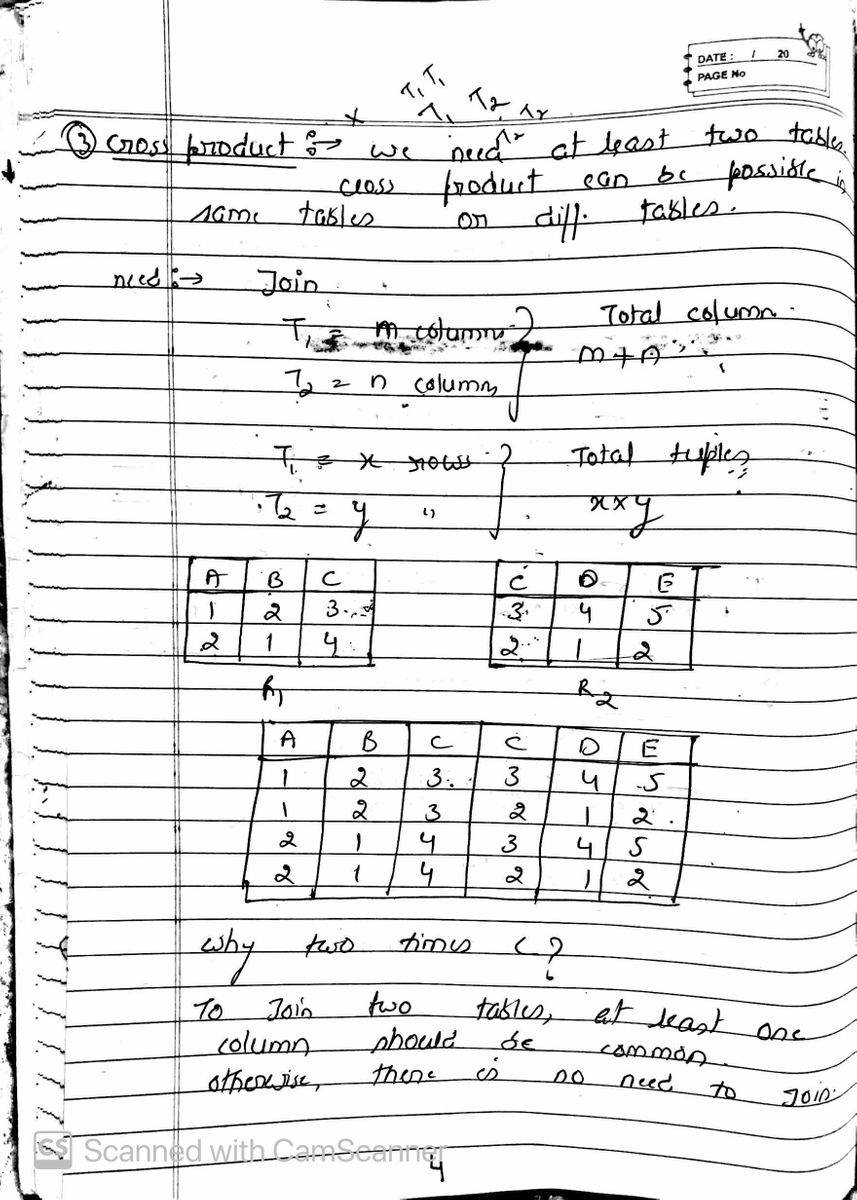 DATE : / 20
PAGE No
T₁ T₁
× T₁ T₂ T₂
T₂
③ cross product :→ we need at least two tables.
cross product can be possible in
same tables or diff. tables.
need :→ Join
T₁ = m columns } Total column
m+n
T₂ = n columns
T₁ = x rows } Total tuples
T₂ = y " x×y
A B C C D E
1 2 3 3 4 5
2 1 4 2 1 2
R₁ R₂
A B C C D E
1 2 3 3 4 5
1 2 3 2 1 2
2 1 4 3 4 5
2 1 4 2 1 2
why two times C?
To Join two tables, at least one
column should be common.
otherwise, there is no need to Join.
CS Scanned with CamScanner
4